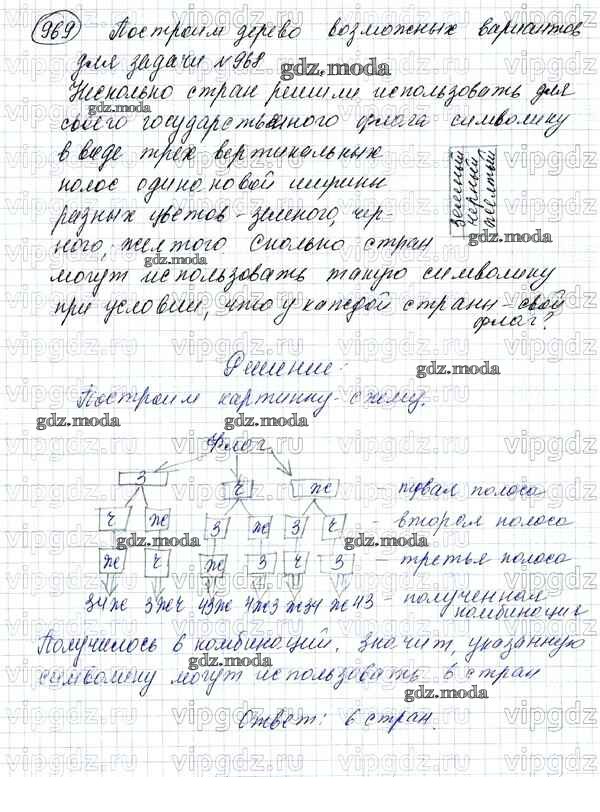 969 Построим дерево возможных вариантов
для задачи №968
gdz.moda
Несколько стран решили использовать для
своего государственного флага символику
в виде трёх вертикальных
полос одинаковой ширины
разных цветов - зеленого, чер-
ного, желтого Сколько стран
могут использовать такую символику
при условии, что у каждой страны свой
флаг?
зеленый
черный
желтый
Решение:
Построим картинку-схему.
Флаг
З Ч Ж - первая полоса
Ч Ж З Ж З Ч - вторая полоса
Ж Ч Ж З Ч З - третья полоса
ЗЧЖ ЗЖЧ ЧЗЖ ЧЖЗ ЖЗЧ ЖЧЗ - полученная
комбинация
Получилось 6 комбинаций. Значит, указанную
символику могут использовать 6 стран
Ответ: 6 стран.
gdz.moda
vipgdz.ru